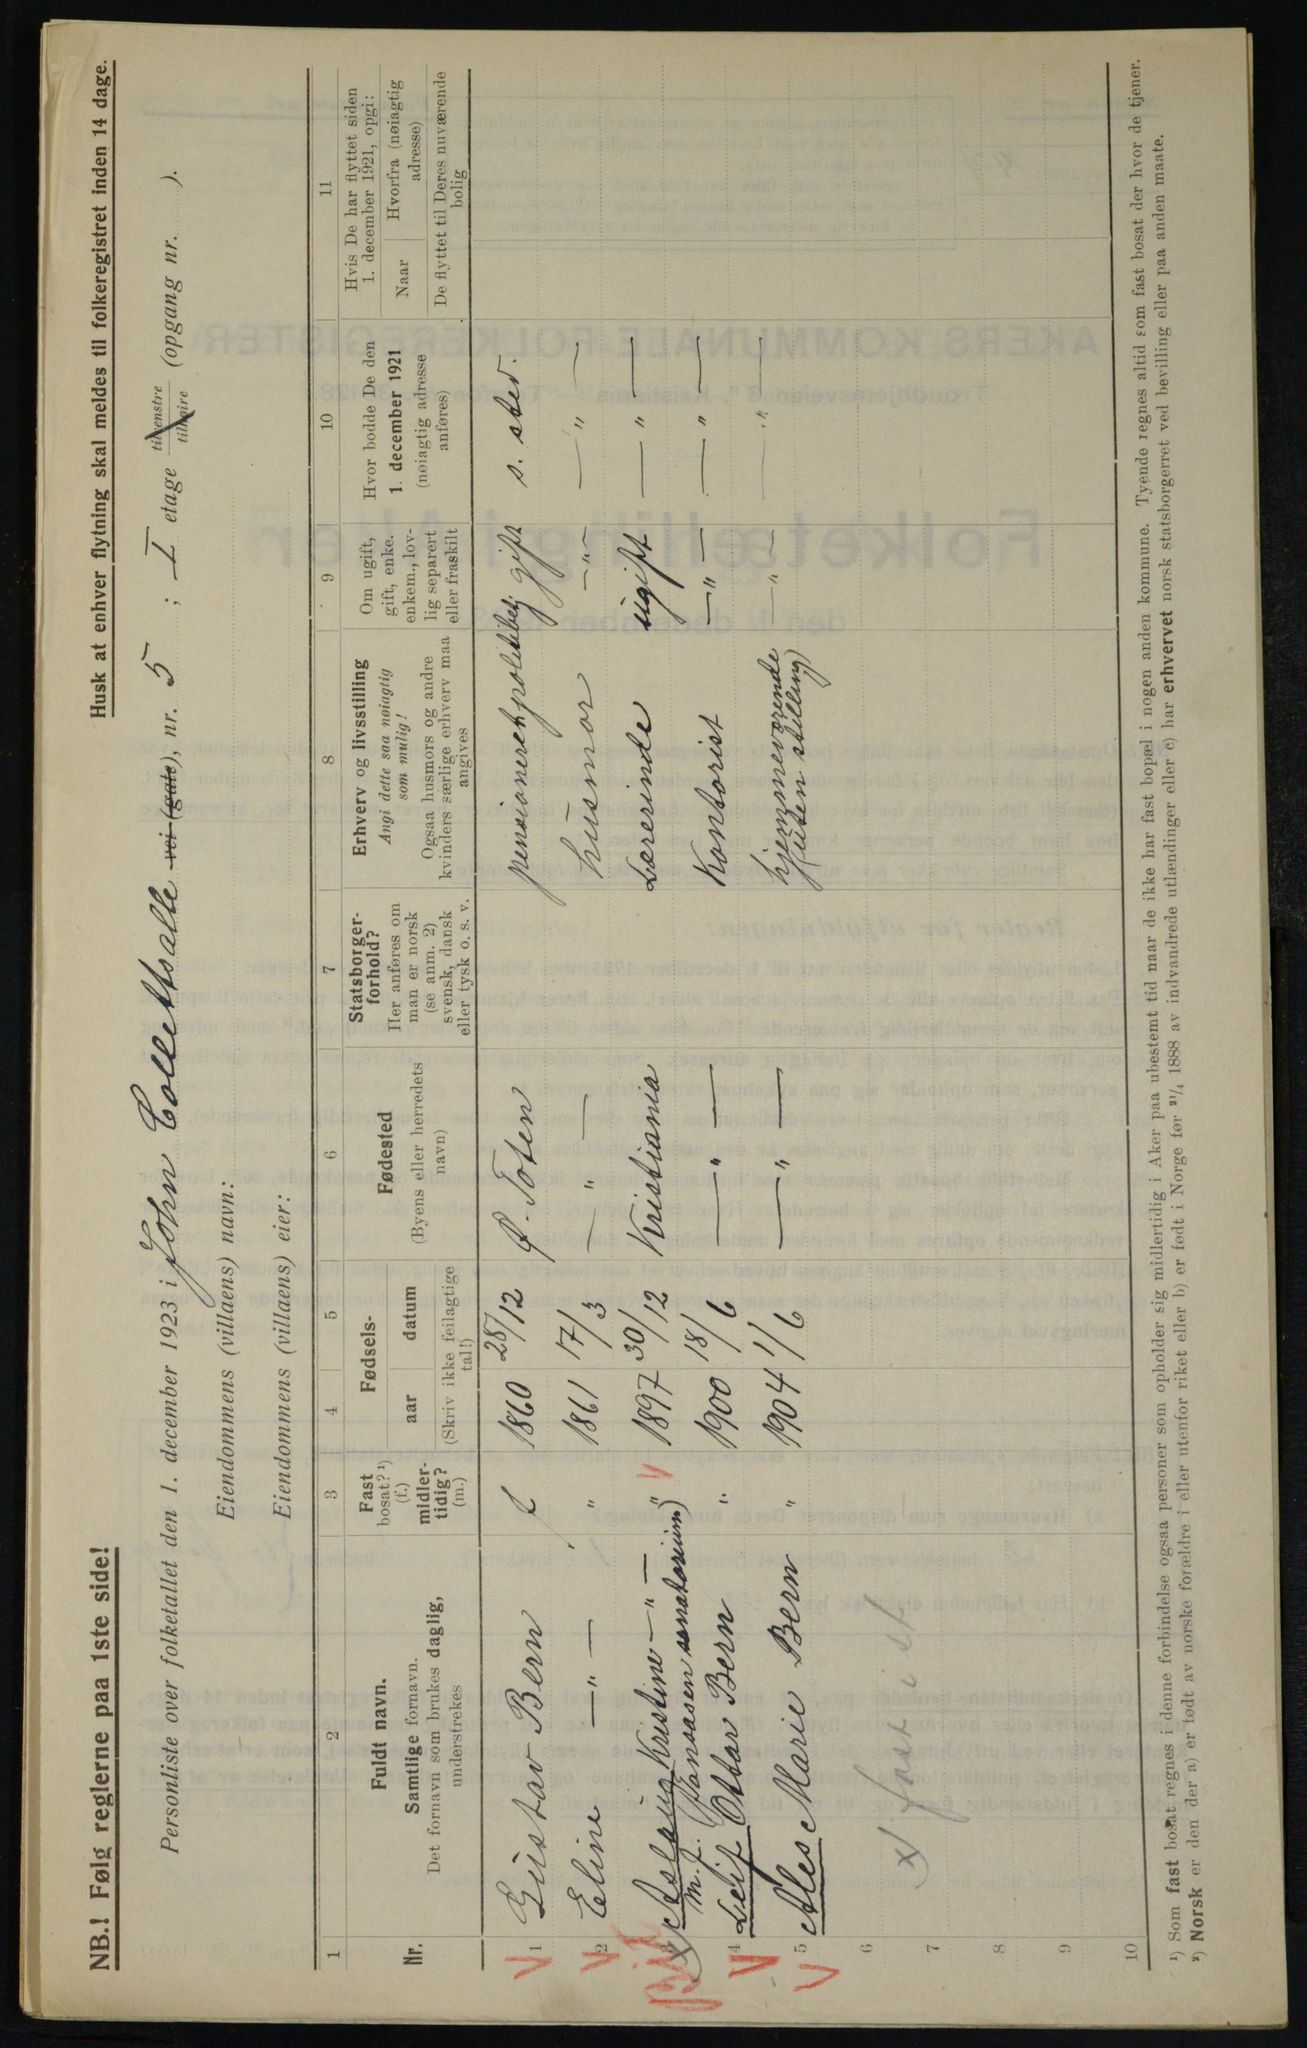 NB.! Følg reglerne paa 1ste side!
Husk at enhver flytning skal meldes til folkeregistret inden 14 dage.
Personliste over folketallet den 1. december 1923 i John Collettsalle vei (gate), nr. 5 ; I etage tilvenstre tilhøire (opgang nr. ).
Eiendommens (villaens) navn:
Eiendommens (villaens) eier:
1 2 3 4 5 6 7 8 9 10 11
Nr.
Fuldt navn.
Samtlige fornavn.
Det fornavn som brukes daglig, understrekes
Fast bosat? ¹) (f.) midlertidig? (m.)
Fødsels-
aar datum
(Skriv ikke feilagtige tal!)
Fødested
(Byens eller herredets navn)
Statsborgerforhold?
Her anføres om man er norsk (se anm. 2) svensk, dansk eller tysk o. s. v.
Erhverv og livsstilling
Angi dette saa nøiagtig som mulig!
Ogsaa husmors og andre kvinders særlige erhverv maa angives
Om ugift, gift, enke. enkem., lovlig separert eller fraskilt
Hvor bodde De den 1. december 1921 (nøiagtig adresse anføres)
Hvis De har flyttet siden 1. december 1921, opgi:
Naar Hvorfra (nøiagtig adresse)
De flyttet til Deres nuværende bolig
1 Gustav Bern f 1860 28/12 Ø. Toten pensioneret politibetj gift s. sted.
2 Eline —"— " 1861 17/3 —"— husmor —"— —"—
3 Aslaug Kristine —"— " 1897 30/12 Kristiania Lærerinde ugift —"—
m. f. sanatorium)
4 Leif Ottar Bern " 1900 18/6 —"— Kontorist —"— —"—
5 Ales Marie Bern " 1904 1/6 —"— hjemmeværende (uten stilling) —"— —"—
6
7
8
9
10
¹) Som fast bosat regnes i denne forbindelse ogsaa personer som opholder sig midlertidig i Aker paa ubestemt tid naar de ikke har fast bopæl i nogen anden kommune. Tyende regnes altid som fast bosat der hvor de tjener.
²) Norsk er den der a) er født av norske forældre i eller utenfor riket eller b) er født i Norge før 21/4 1888 av indvandrede utlændinger eller c) har erhvervet norsk statsborgerret ved bevilling eller paa anden maate.